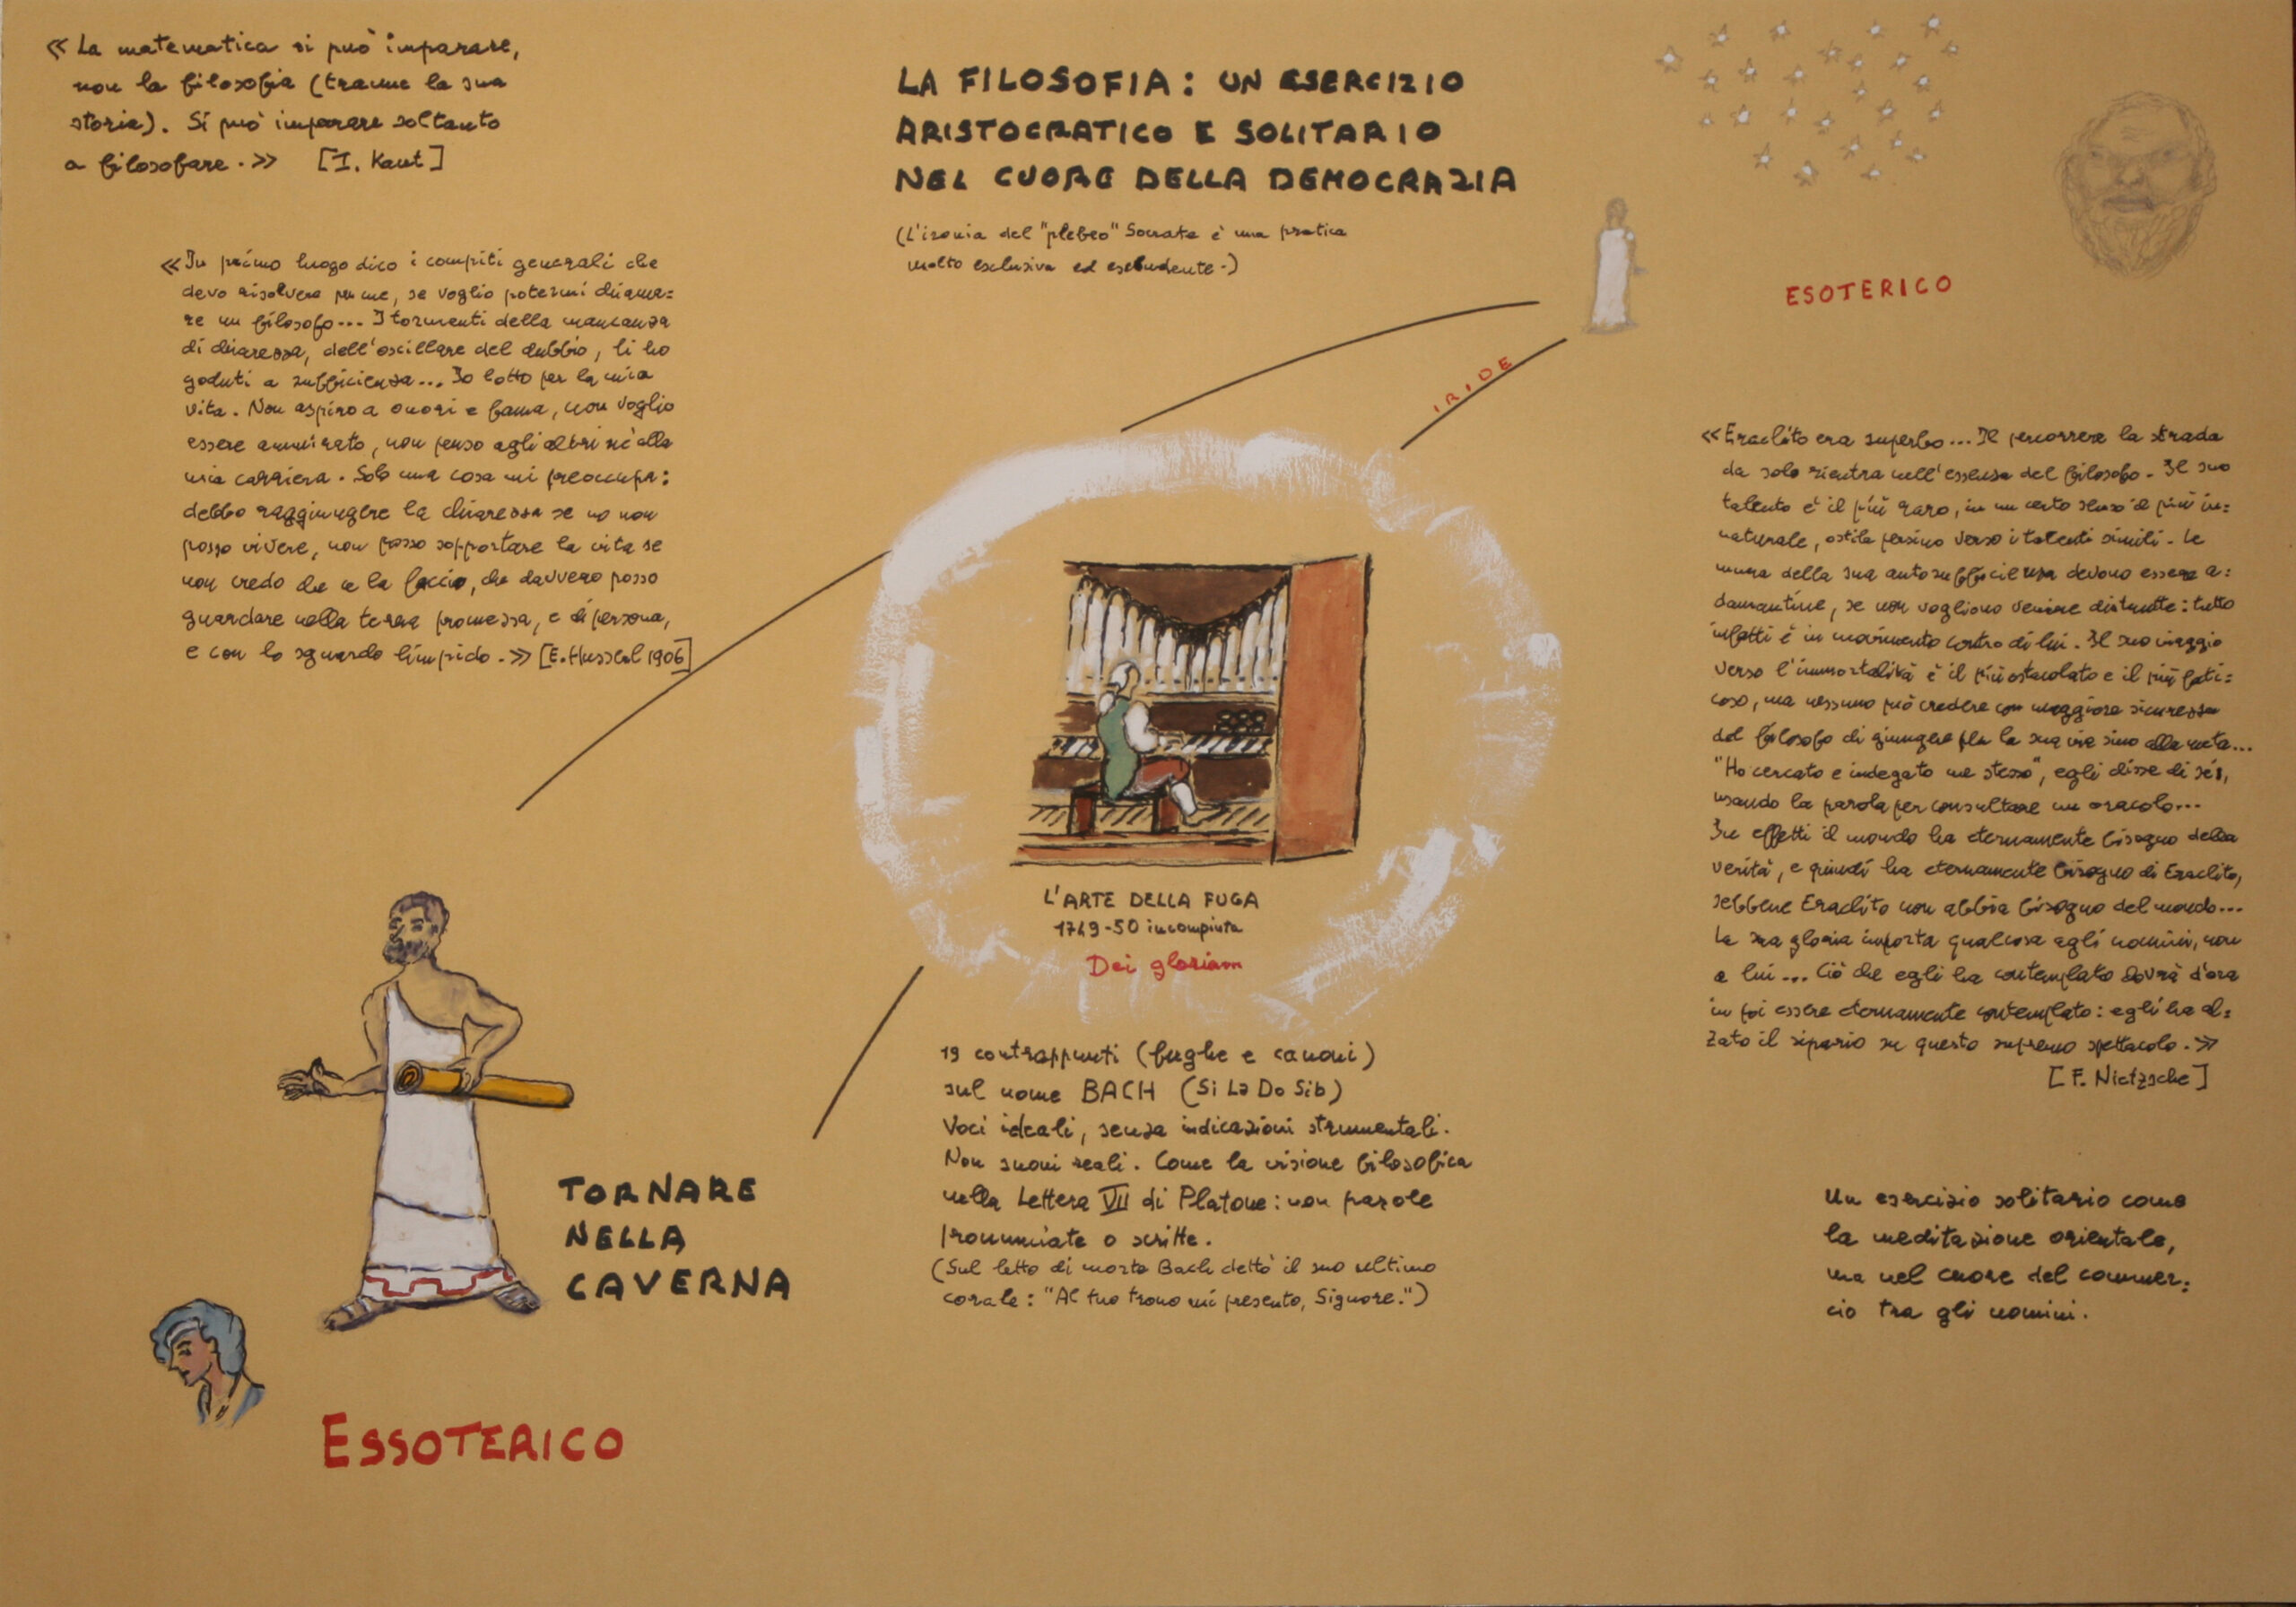 « La matematica si può imparare,
non la filosofia (tranne la sua
storia). Si può imparare soltanto
a filosofare.» [I. Kant]
«In primo luogo dico i compiti generali che
devo risolvere per me, se voglio potermi chiama=
re un filosofo... I tormenti della mancanza
di chiarezza, dell'oscillare del dubbio, li ho
goduti a sufficienza... Io lotto per la mia
vita. Non aspiro a onori e fama, non voglio
essere ammirato, non penso agli altri nè alla
mia carriera. Solo una cosa mi preoccupa:
debbo raggiungere la chiarezza se no non
posso vivere, non posso sopportare la vita se
non credo che ce la faccio, che davvero posso
guardare nella terra promessa, e di persona,
e con lo sguardo limpido.» [E. Husserl 1906]
LA FILOSOFIA: UN ESERCIZIO
ARISTOCRATICO E SOLITARIO
NEL CUORE DELLA DEMOCRAZIA
(L'ironia del "plebeo" Socrate è una pratica
molto esclusiva ed escludente.)
ESOTERICO
IRIDE
«Eraclito era superbo... Il percorrere la strada
da solo rientra nell'essenza del filosofo. Il suo
talento è il più raro, in un certo senso il più in=
naturale, ostile persino verso i talenti simili. Le
mura della sua autosufficienza devono essere a=
damantine, se non vogliono venire distrutte: tutto
infatti è in movimento contro di lui. Il suo viaggio
verso l'immortalità è il più ostacolato e il più fati=
coso, ma nessuno può credere con maggiore sicurezza
del filosofo di giungere per la sua via sino alla meta...
"Ho cercato e indagato me stesso", egli disse di sé,
usando la parola per consultare un oracolo...
In effetti il mondo ha eternamente bisogno della
verità, e quindi ha eternamente bisogno di Eraclito,
sebbene Eraclito non abbia bisogno del mondo...
La sua gloria importa qualcosa agli uomini, non
a lui... Ciò che egli ha contemplato dovrà d'ora
in poi essere eternamente contemplato: egli ha al=
zato il sipario su questo supremo spettacolo.»
[F. Nietzsche]
L'ARTE DELLA FUGA
1749-50 incompiuta
Dei gloriam
19 contrappunti (fughe e canoni)
sul nome BACH (Si La Do Sib)
Voci ideali, senza indicazioni strumentali.
Non suoni reali. Come la visione filosofica
nella Lettera VII di Platone: non parole
pronunciate o scritte.
(Sul letto di morte Bach dettò il suo ultimo
corale: "Al tuo trono mi presento, Signore.")
TORNARE
NELLA
CAVERNA
ESSOTERICO
Un esercizio solitario come
la meditazione orientale,
ma nel cuore del commer=
cio tra gli uomini.